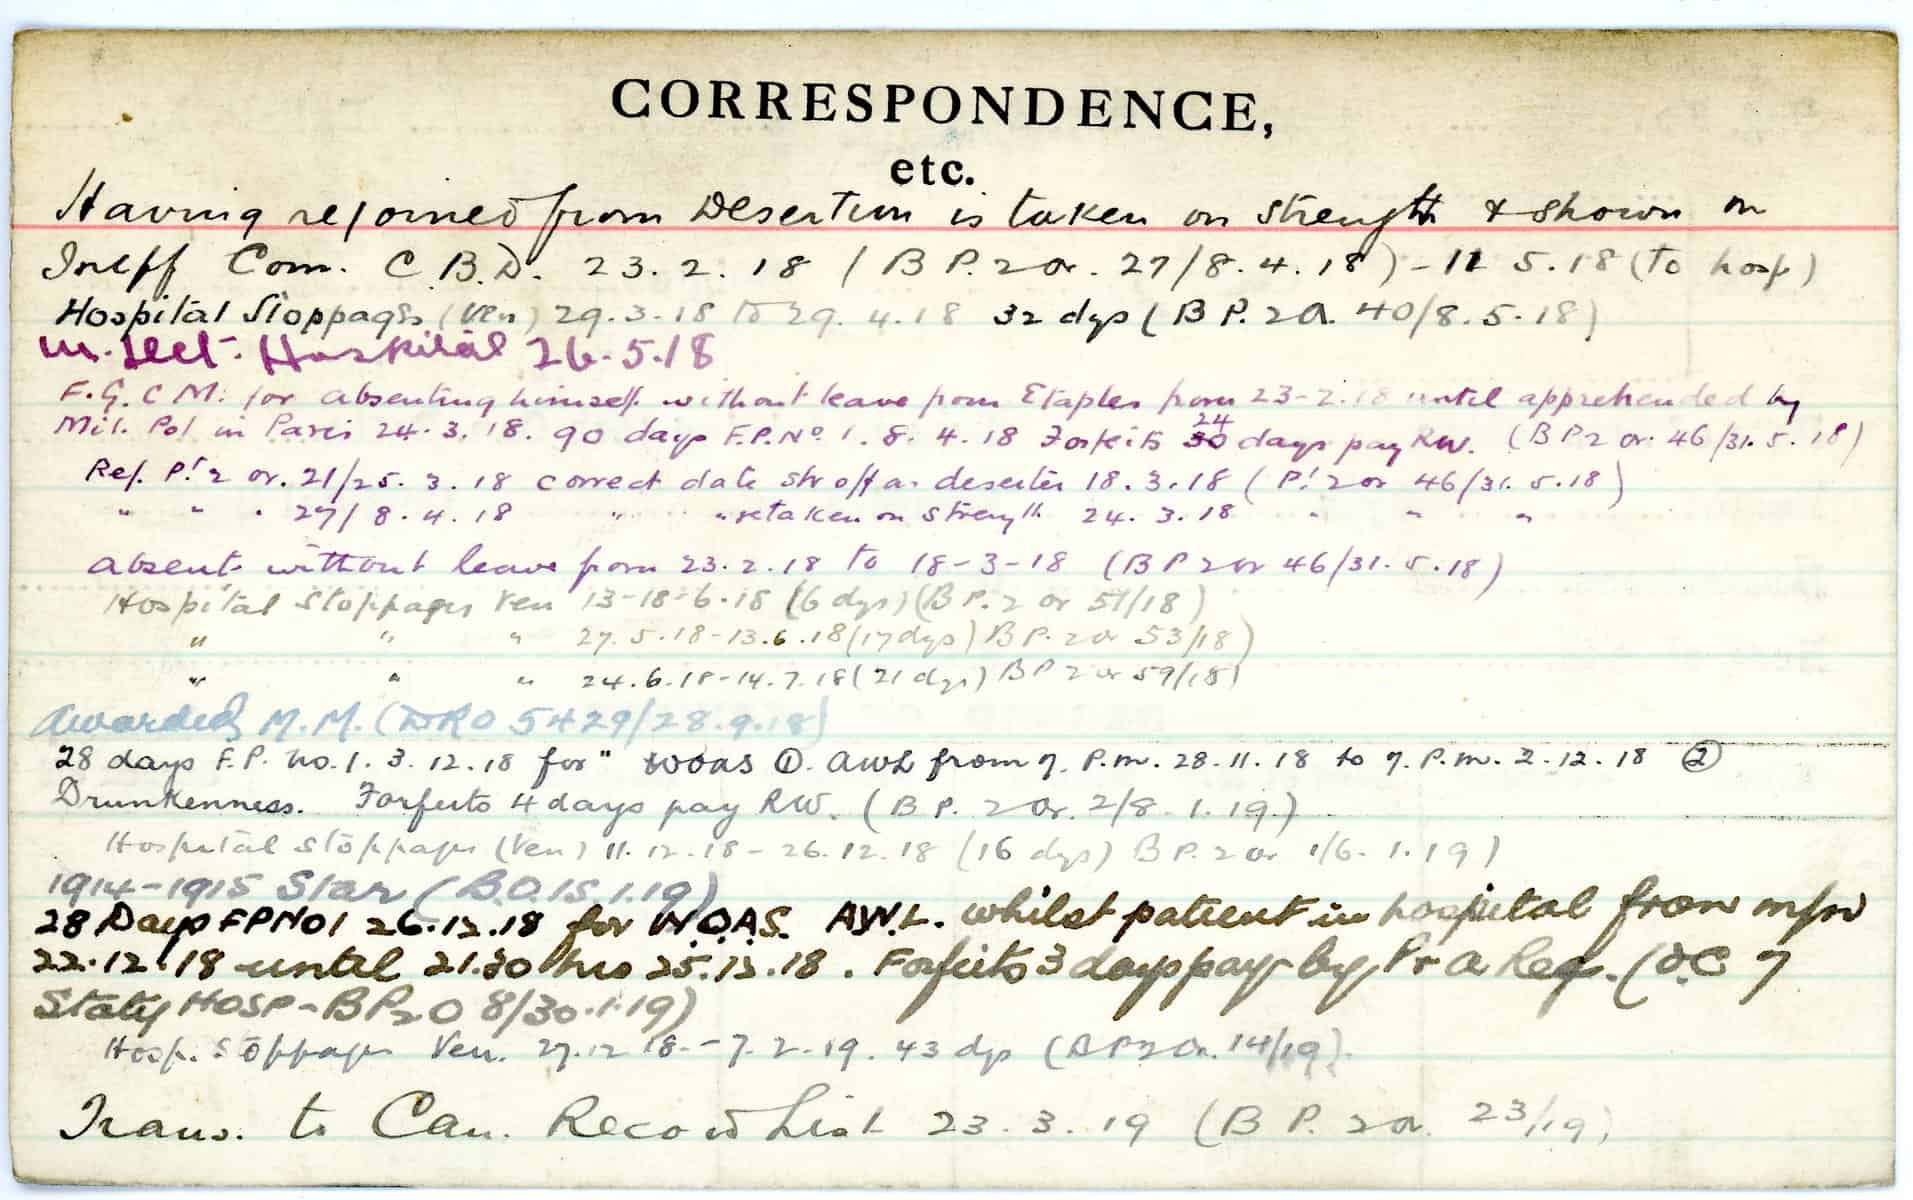 CORRESPONDENCE,
etc.
Having rejoined from Desertion is taken on strength & shown on
Ineff Com. C.B.D. 23.2.18 (B P.2 or. 27/8.4.18) - 11 5.18 (to hosp)
Hospital Stoppages (Ven) 29.3.18 to 29.4.18 32 dys (B P. 2 Or. 40/8.5.18)
Hospital 26.5.18
F.G.C.M. for absenting himself without leave from Etaples from 23-2.18 until apprehended by
24
Mil. Pol in Paris 24.3.18. 90 days F.P. No 1. 8.4.18 Forfeits 30 days pay RW. (B P 2 or. 46/31.5.18)
Ref. Pt 2 or. 21/25.3.18 correct date str off as deserter 18.3.18 (Pt 2 or 46/31.5.18)
" " " 27/8.4.18 " " retaken on strength 24.3.18 " " "
absent without leave from 23.2.18 to 18-3-18 (B P 2 or 46/31.5.18)
Hospital Stoppages Ven 13-18-6-18 (6 dys) (B P. 2 or 51/18)
" " " 27.5.18-13.6.18 (17 dys) B P. 2 or 53/18)
" " " 24.6.18-14.7.18 (21 dys) B P 2 or 59/18)
Awarded M.M. (DRO 5429/28.9.18)
28 days F.P. No.1. 3.12.18 for " WOAS ①. AWL from 7. P.m. 28.11.18 to 7. P.m. 2.12.18 ②
Drunkenness. Forfeits 4 days pay RW. (B P. 2 Or. 2/8.1.19.)
Hospital Stoppages (Ven) 11.12.18 - 26.12.18 (16 dys) B P. 2 or 1/6.1.19)
1914-1915 Star (B.O.15.1.19)
28 Days FP No 1 26.12.18 for W.O.A.S. A.W.L. whilst patient in hospital from m/n
22.12.18 until 21.30 hrs 25.12.18. Forfeits 3 days pay by Reg. (O.C 7
Staty Hosp - BP2O 8/30.1.19)
Hosp. Stoppages Ven. 27.12 18 - 7.2.19. 43 dys (B P 2 Or. 14/19).
Trans. to Can. Record List 23.3.19 (B P. 2 or. 23/19)